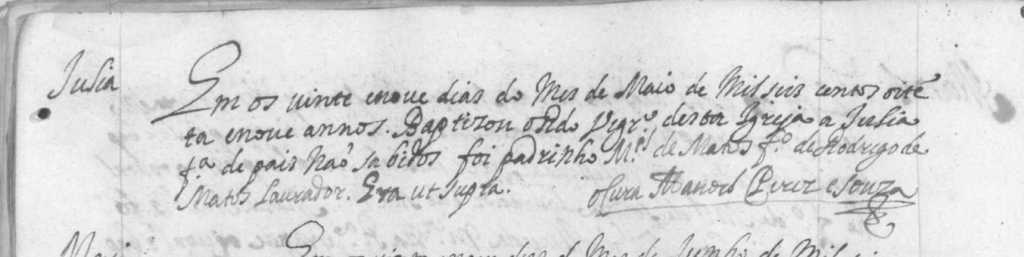 Julia
Em os uinte enoue dias do Mes de Maio de Mil seis centos oite
ta enoue annos. Baptizou o Pe do Vigro desta Igreja a Julia
fa de pais Naõ sabidos foi padrinho Mel de Matos fo de Rodrigo de
Matos Laurador. Era ut supra. o Cura Manoel Perez e Souza
Em os de Junho de Mil